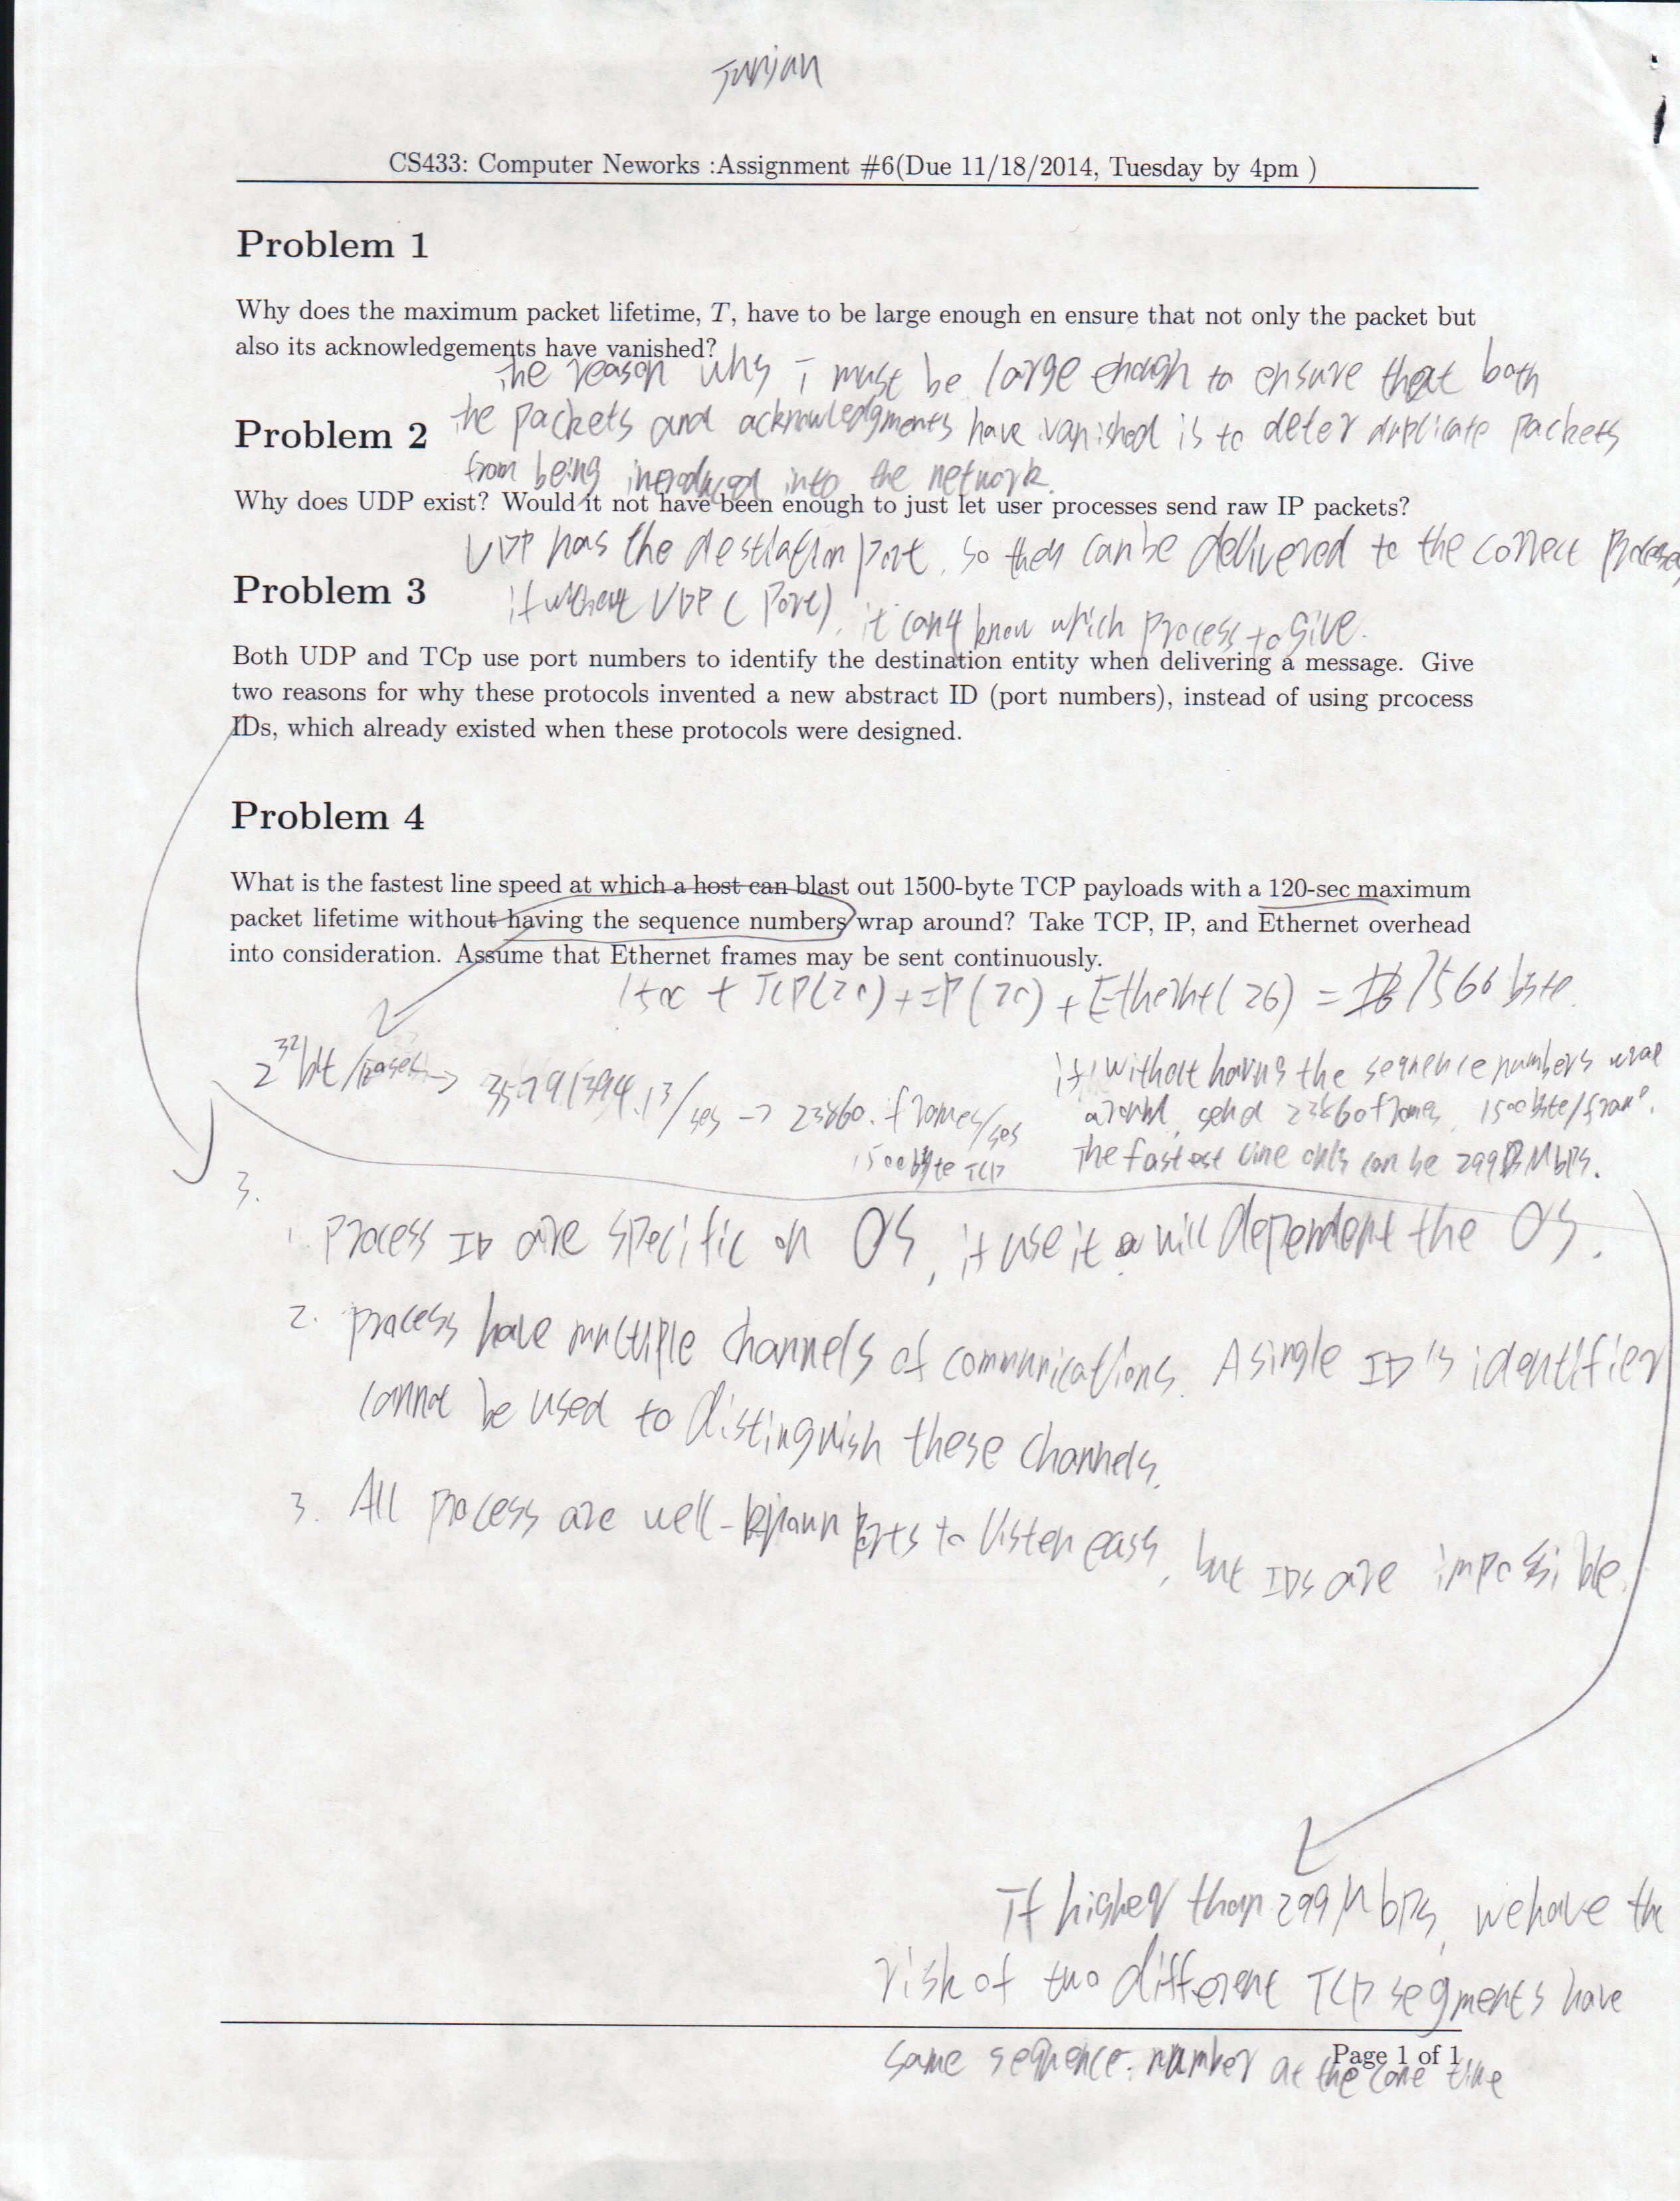 Junjun
CS433: Computer Neworks :Assignment #6(Due 11/18/2014, Tuesday by 4pm )
Problem 1
Why does the maximum packet lifetime, T, have to be large enough en ensure that not only the packet but
also its acknowledgements have vanished?
The reason why T must be large enough to ensure that both
the packets and acknowledgments have vanished is to deter duplicate packets
from being introduced into the network.
Problem 2
Why does UDP exist? Would it not have been enough to just let user processes send raw IP packets?
UDP has the destiation port, so they can be delivered to the correct
if without UDP (Port), it can't know which process to give.
Problem 3
Both UDP and TCp use port numbers to identify the destination entity when delivering a message. Give
two reasons for why these protocols invented a new abstract ID (port numbers), instead of using prcocess
IDs, which already existed when these protocols were designed.
Problem 4
What is the fastest line speed at which a host can blast out 1500-byte TCP payloads with a 120-sec maximum
packet lifetime without having the sequence numbers wrap around? Take TCP, IP, and Ethernet overhead
into consideration. Assume that Ethernet frames may be sent continuously.
1500 + TCP(20) + IP(20) + Ethernet(26) = 1566 byte.
2^32 bit / 120 sec -> 35791394.13/ses -> 23860. frames/ses
1500 byte TCP
if without having the sequence numbers wrap
around, send 23860 frames, 1500 byte/frame.
The fastest line only can be 299 Mbps.
3.
1. Process ID are specific on OS, if use it will dependent the OS.
2. process have multiple channels of communications. A single ID's identifier
cannot be used to distinguish these channels.
3. All process are well-known ports to listen easy, but IDs are impossible.
If higher than 299 Mbps, we have the
risk of two different TCP segments have
same sequence number at the same time
Page 1 of 1